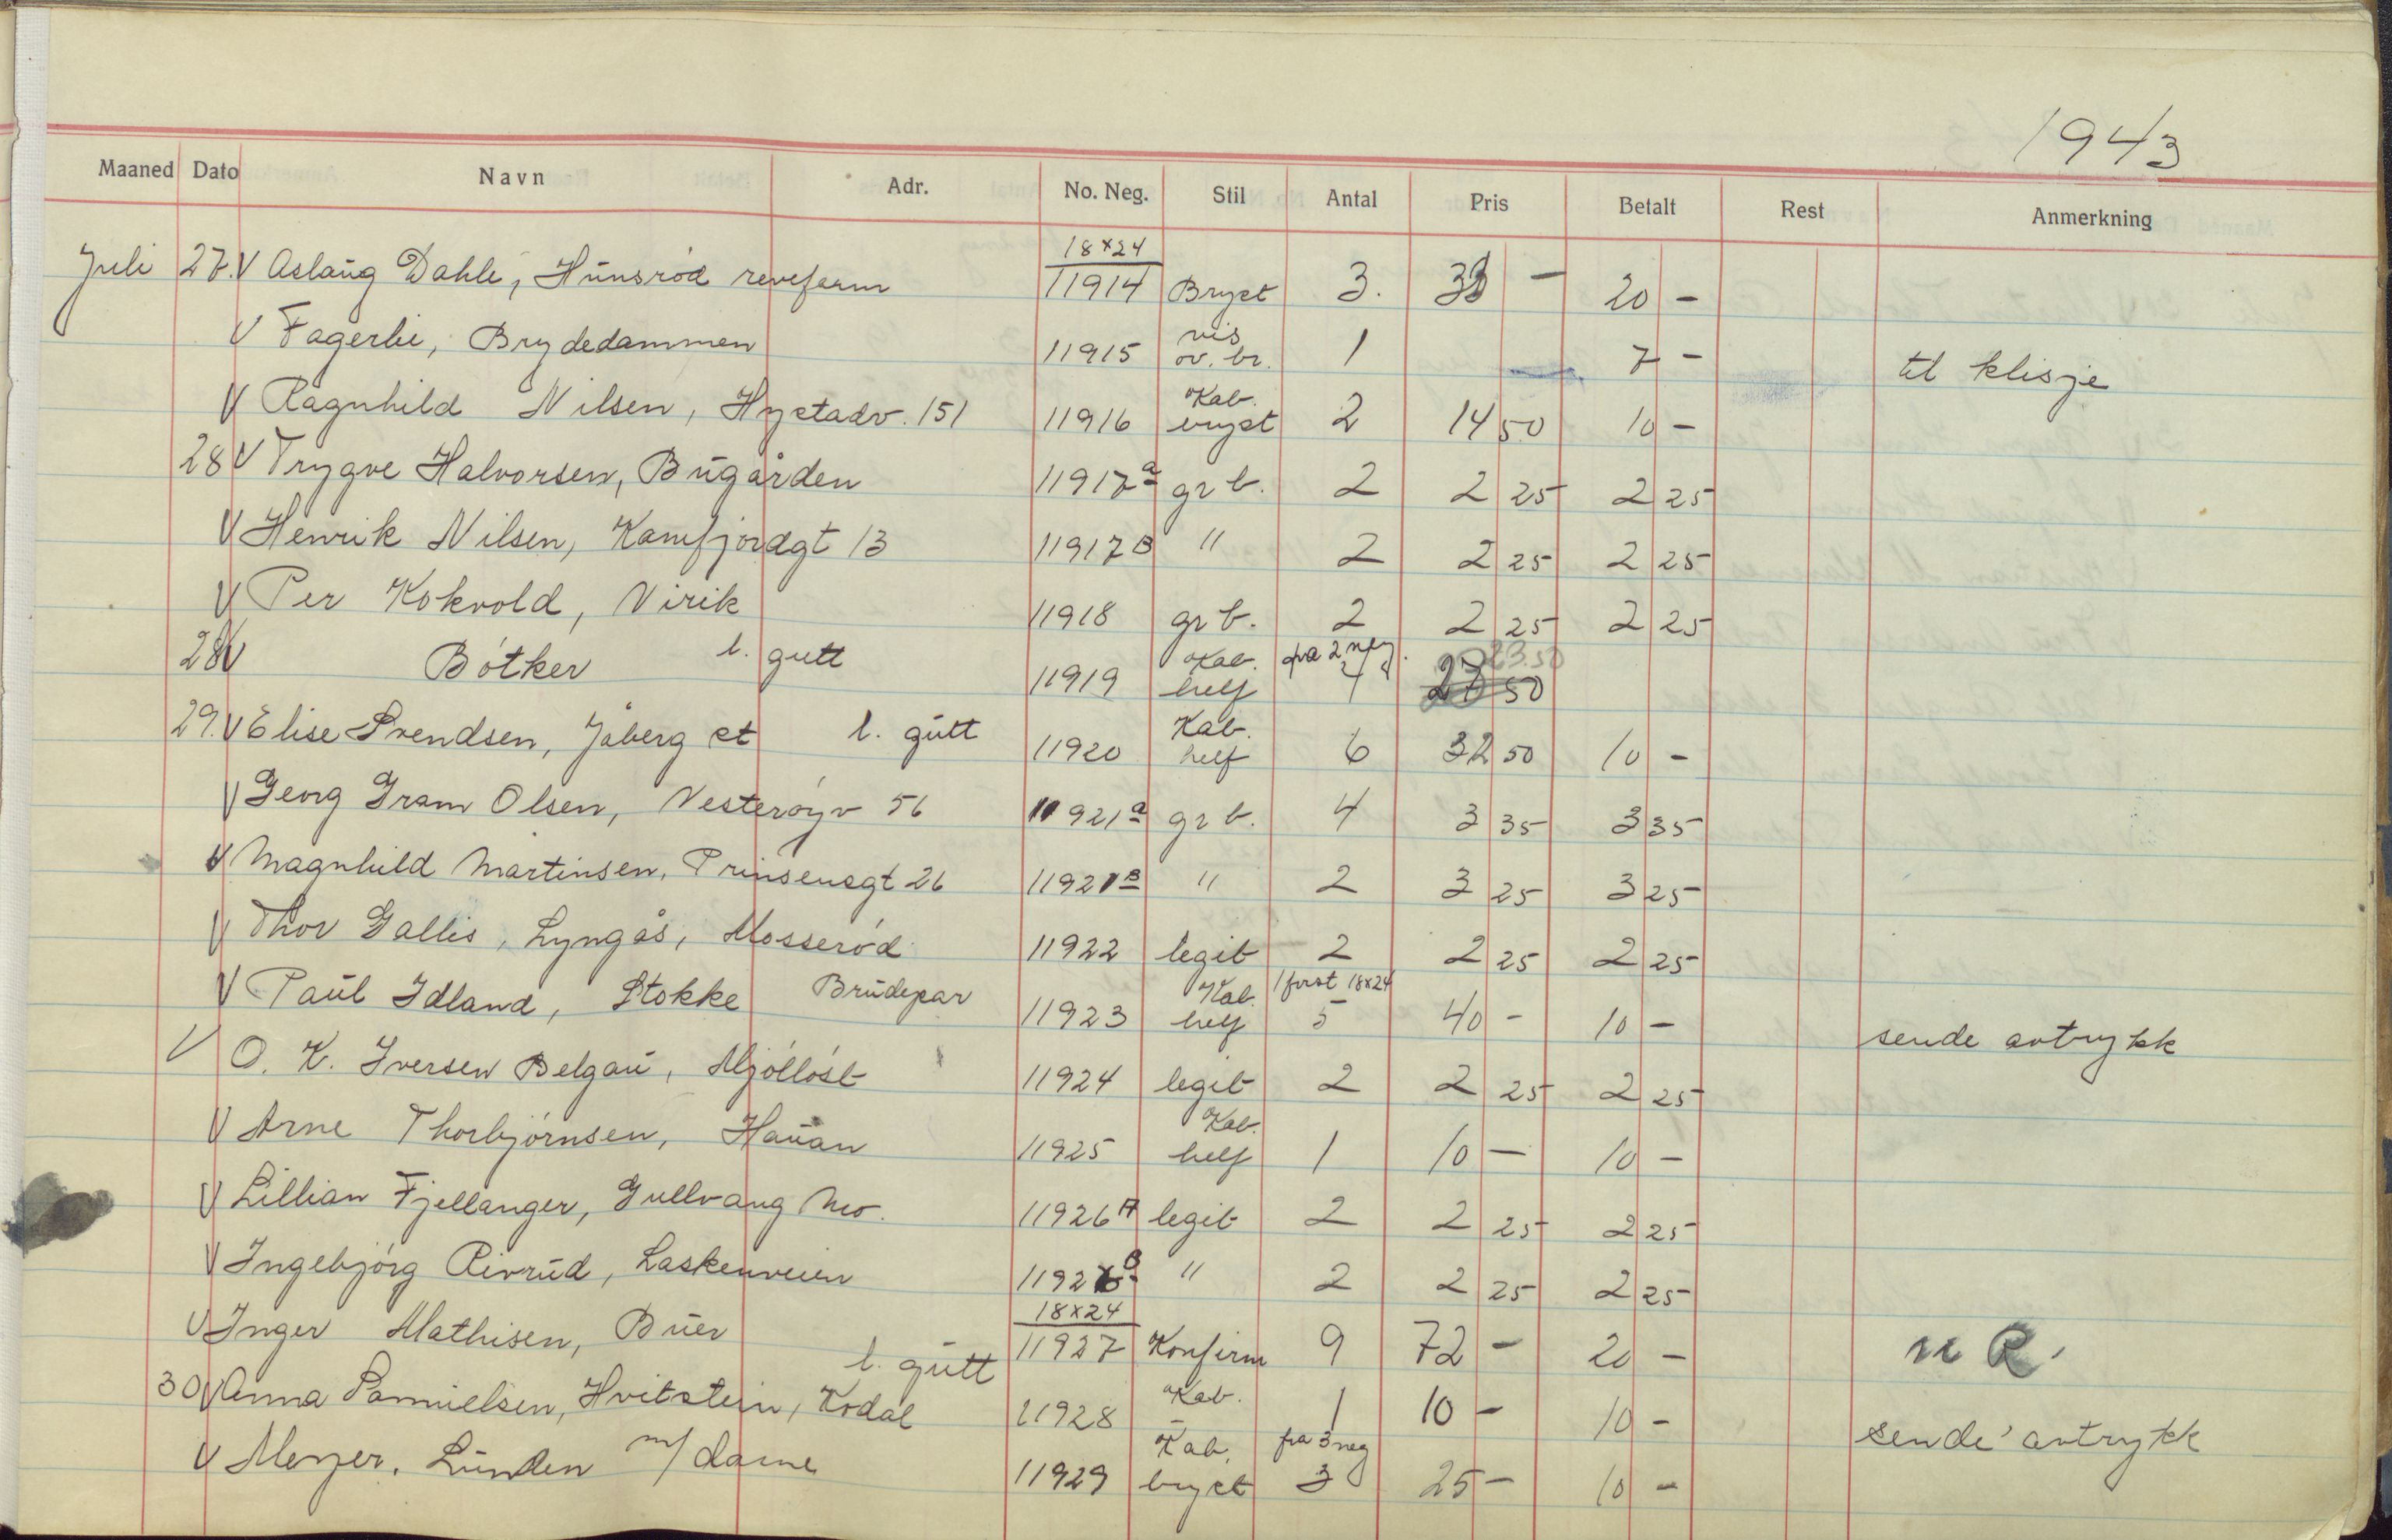 1943
Maaned Dato Navn Adr. No. Neg. Stil Antal Pris Betalt Rest Anmerkning
18x24
Juli 27. V Aslaug Dahle, Hunsrød revefarm 11914 Bryst 3. 33 — 20 —
vis
V Fagerli, Brydedammen 11915 ov. br. 1 7 — til klisje
Kab.
V Ragnhild Nilsen, Hystadv. 151 11916 bryst 2 14 50 10 —
28 V Trygve Halvorsen, Bugården 11917a gr b. 2 2 25 2 25
V Henrik Nilsen, Kamfjordgt 13 11917B " 2 2 25 2 25
V Per Kokvold, Virik 11918 gr b. 2 2 25 2 25
Kab. fra 2 neg. 23.50
28 V Bøtker l. gutt 11919 helf 4 50
Kab.
29. V Elise Svendsen, Jåberg st l. gutt 11920 helf 6 32 50 10 —
V Georg Gram Olsen, Vesterøyv 56 11921a gr b. 4 3 35 3 35
V Magnhild Martinsen, Prinsensgt 26 11921B " 2 3 25 3 25
V Thor Gallis, Lyngås, Mosserød 11922 legit 2 2 25 2 25
Kab. 1 forst 18x24
V Paul Idland, Stokke Brudepar 11923 helf 5 40 — 10 — sende avtrykk
V O. K. Iversen Belgau, Mjølløst 11924 legit 2 2 25 2 25
Kab.
V Arne Thorbjørnsen, Hauan 11925 helf 1 10 — 10 —
V Lillian Fjellanger, Gullvang Mo. 11926A legit 2 2 25 2 25
V Ingebjørg Rivrud, Laskenveien 11926B " 2 2 25 2 25
18x24
V Inger Mathisen, Buer 11927 Konfirm 9 72 — 20 — R.
l. gutt Kab.
30 V Anna Samuelsen, Hvitstein, Kodal 11928 1 10 — 10 — sende avtrykk
Kab. fra 3 neg
V Meyer, Lunden m/ dame 11929 bryst 3 25 — 10 —